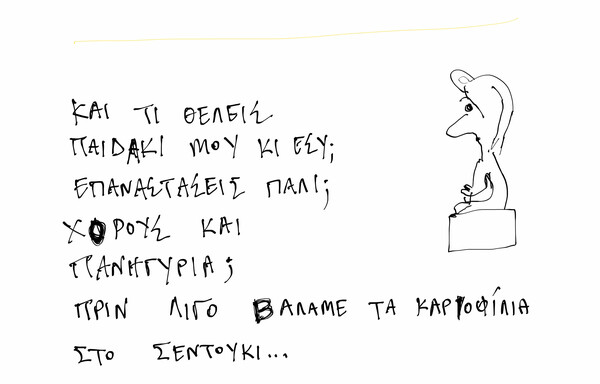 ΚΑΙ ΤΙ ΘΕΛΕΙΣ
ΠΑΙΔΑΚΙ ΜΟΥ ΚΙ ΕΣΥ;
ΕΠΑΝΑΣΤΑΣΕΙΣ ΠΑΛΙ;
ΧΟΡΟΥΣ ΚΑΙ
ΠΑΝΗΓΥΡΙΑ;
ΠΡΙΝ ΛΙΓΟ ΒΑΛΑΜΕ ΤΑ ΚΑΡΙΟΦΙΛΙΑ
ΣΤΟ ΣΕΝΤΟΥΚΙ...